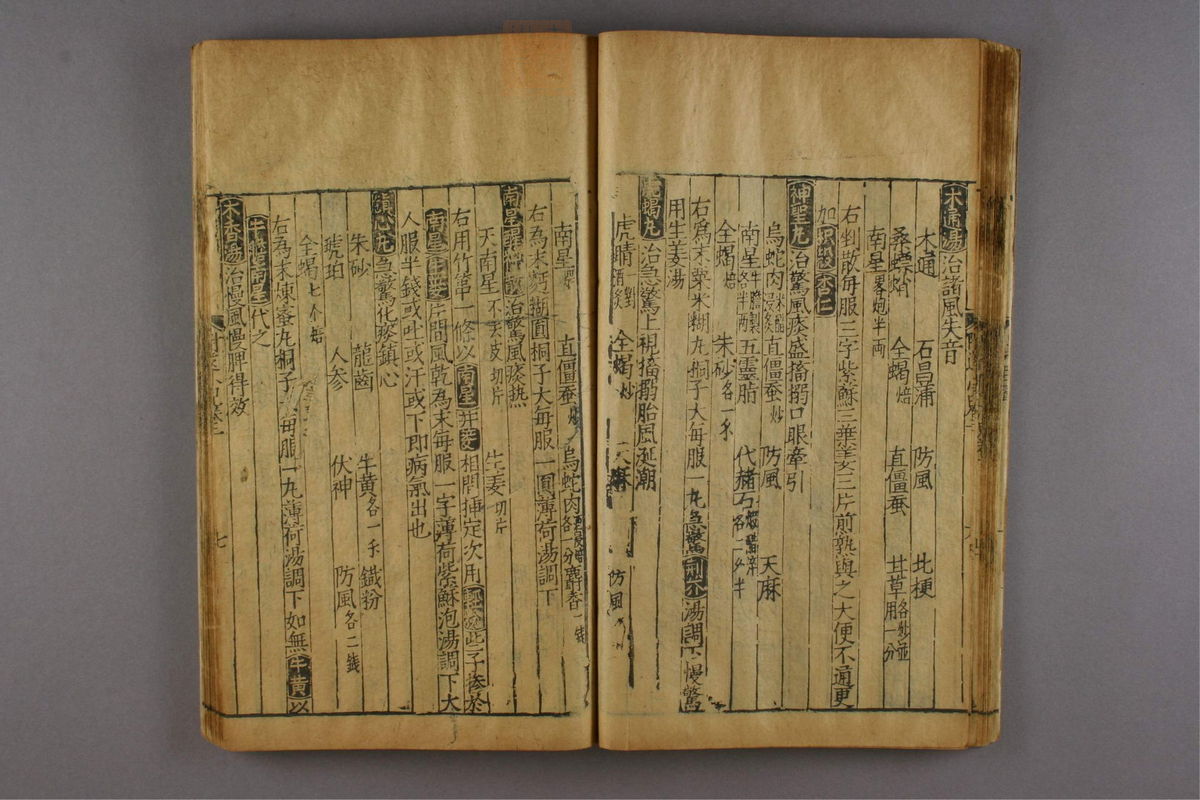 木通湯治諸風失音
木通 石昌蒲 防風 北梗
桑螵蛸 全蝎焙 直僵蚕 甘草各炒並用一分
南星畧炮半両
右剉散每服三字紫蘇三葉姜三片煎熟與之大便不通更
加枳殼杏仁
神聖丸治驚風痰盛搐搦口眼牽引
烏蛇肉 直僵蚕炒 防風 天麻
南星牛膽製各半両 五靈脂 代赭石
全蝎焙 朱砂各一
右爲末粟米糊丸桐子大每服一丸急驚荆芥湯調下慢驚
用生姜湯
蝎丸治急驚上視搐搦胎風延潮
虎睛 全蝎炒 天麻 防風
南星 直僵蚕 烏蛇肉 麝香一錢
右為末麪糊圓桐子大每服一圓薄荷湯調下
南星 治驚風痰热
天南星不去皮切片 生姜切片
右用竹箄一條以南星并姜相間揷定次用輕 些子滲於
南星生姜片間風乾為末每服一字薄荷紫蘇泡湯調下大
人服半錢或吐或汗或下即病氣出也
鎮心丸急驚化痰鎮心
朱砂 龍齒 牛黃各一 鐵粉
琥珀 人参 伏神 防風各二錢
全蝎七个焙
右為末煉蜜丸桐子大每服一丸薄荷湯調下如無牛黃以
牛膽南星代之
木香湯治慢風慢脾得效
七